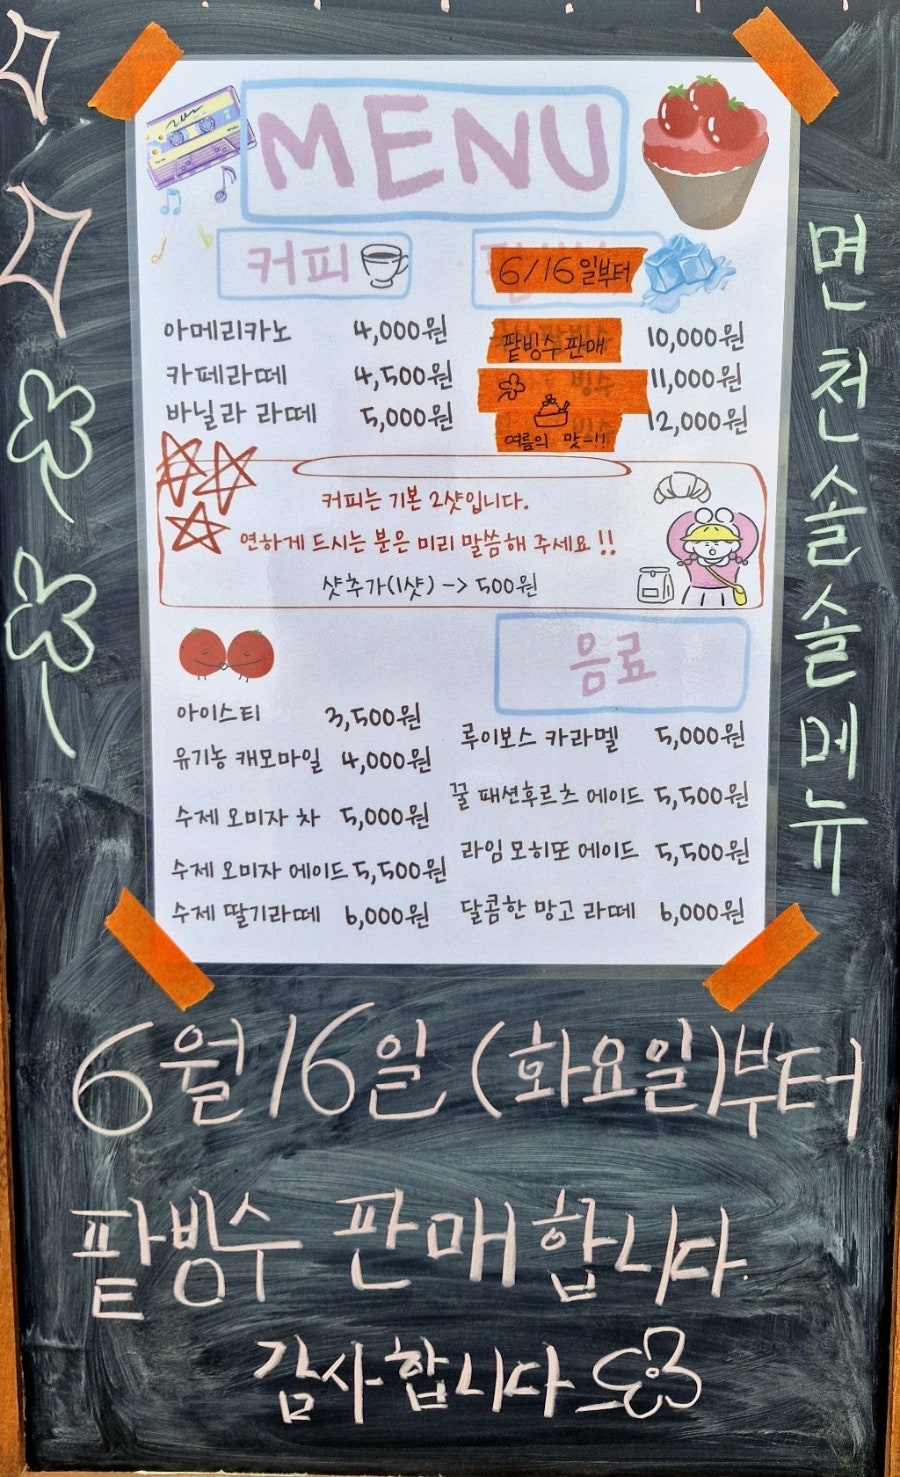 MENU
커피
6/16일부터
아메리카노 4,000원
카페라떼 4,500원
바닐라 라떼 5,000원
팥빙수 판매 10,000원
빙수 11,000원
12,000원
여름의 맛~!!
커피는 기본 2샷입니다.
연하게 드시는 분은 미리 말씀해 주세요!!
샷추가(1샷) -> 500원
음료
아이스티 3,500원
유기농 캐모마일 4,000원
수제 오미자 차 5,000원
수제 오미자 에이드 5,500원
수제 딸기라떼 6,000원
루이보스 카라멜 5,000원
꿀 패션후르츠 에이드 5,500원
라임 모히또 에이드 5,500원
달콤한 망고 라떼 6,000원
면천솔솔메뉴
6월 16일 (화요일)부터
팥빙수 판매합니다.
감사합니다